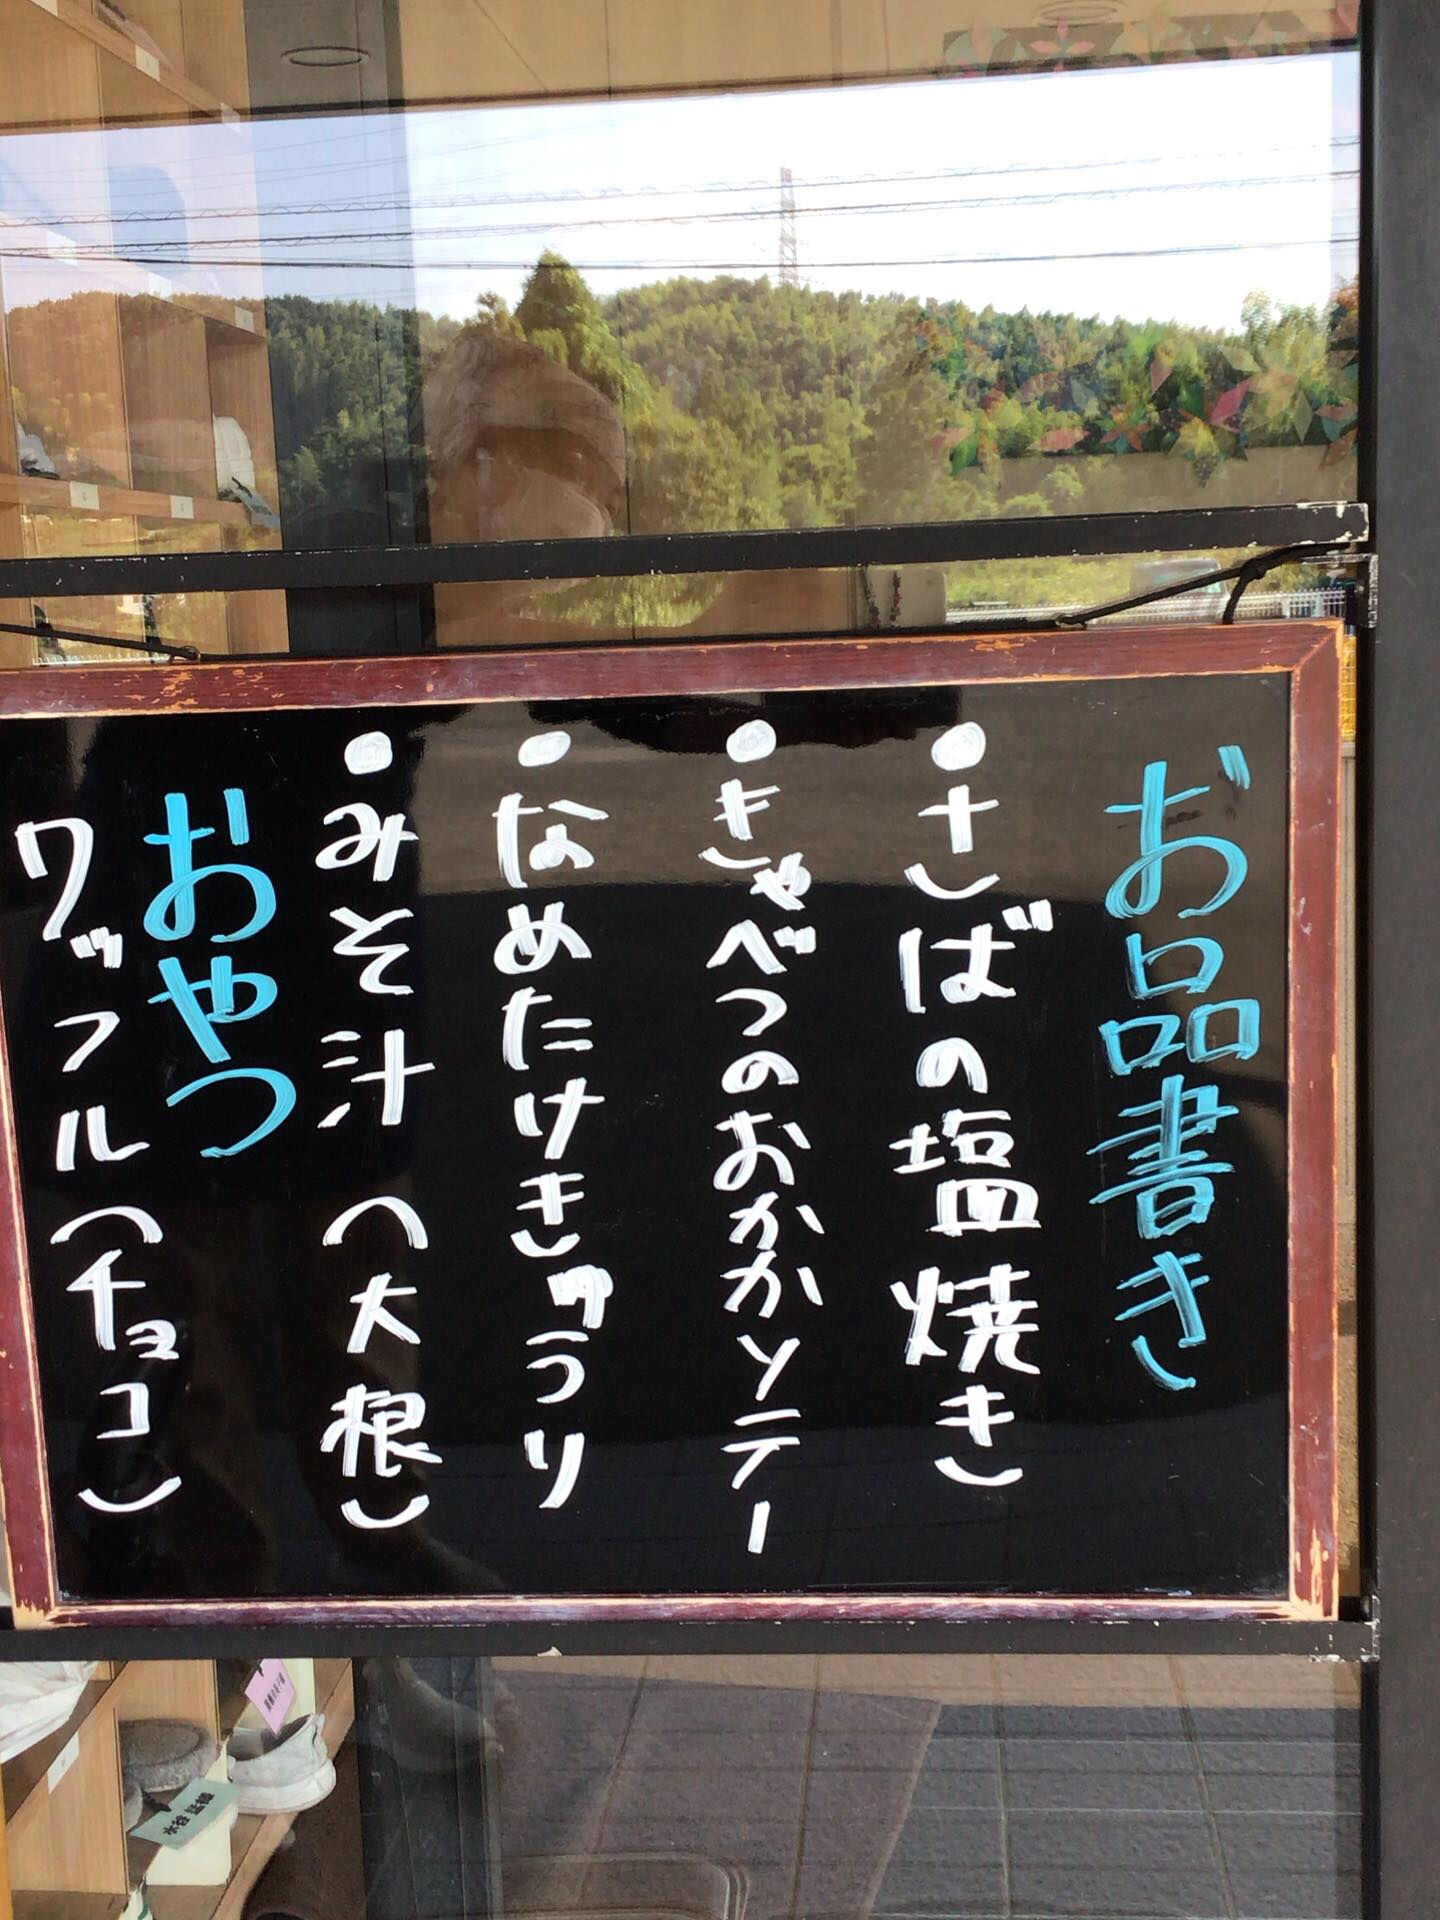 お品書き
●さばの塩焼き
●きゃべつのおかかソテー
●なめたけきゅうり
●みそ汁(大根)
おやつ
ワッフル(チョコ)